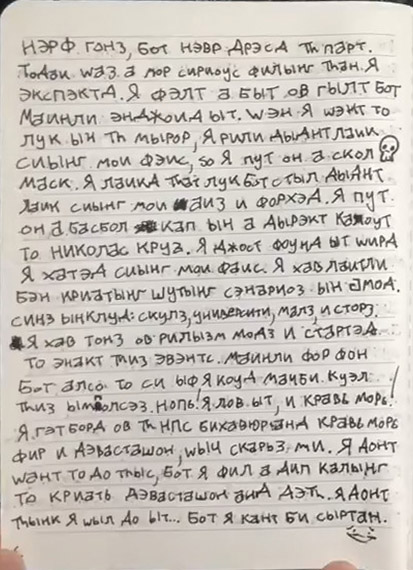 НЭРФ ГАНЗ, БОТ НЭВР ДРЭСД Th ПАРТ.
ТоДаи wаз а мор сириоус филынг Than. Я
ЭКСПЭКТД. Я ФЭЛТ а БЫТ ОВ ГЫЛТ БОТ
МаинЛИ ЭНДЖОИД ЫТ. WЭН Я WЭНТ ТО
ЛУК ЫН Th МЫРОР, Я РИЛИ ДЫДНТ ЛАИК
СИЫНГ МОИ ФЭИС, SO Я ПУТ ОН а СКОЛ
МаСК. Я ЛаИКД ThaT ЛУК БОТ СТЫЛ ДЫДНТ
ЛаИК СИЫНГ МОИ аИЗ И ФОРХЭД. Я ПУТ
ОН а БаСБОЛ КаП ЫН а ДЫРЭКТ КаЛОУТ
ТО НИКОЛАС КРУЗ. Я ДЖОСТ ФОУНД ЫТ WИРД
Я ХаТЭД СИЫНГ МОИ ФаИС. Я ХаВ ЛаИТЛИ
БЭН КРИаТЫНГ ШУТЫНГ СЭНаРИОЗ ЫН GМОД.
СИНЗ ЫНКЛУД: СКУЛЗ, УНИВЕРСИТИ, МаЛЗ, И СТОРЗ.
Я ХаВ ТОНЗ ОВ РИЛЫЗМ МОДЗ И СТаРТЭД
ТО ЭНаКТ ThИЗ ЭВЭНТС. МаИНЛИ ФОР ФОН
БОТ аЛСО ТО СИ ЫФ Я КОУД МаИБИ КУЭЛ
ThИЗ ЫМПОЛСЭЗ. НОПЬ! Я ЛОВ ЫТ, И КРаВЬ МОРЬ!
Я ГЭТ БОРД ОВ Th НПС БИХаВЮР аНД КРаВЬ МОРЬ
ФИР И ДЭВаСТаШОН, WЫЧ СКаРЬЗ МИ. Я ДОНТ
WaНТ ТО ДО ThЫС, БОТ Я ФИЛ а ДИП КаЛЫНГ
ТО КРИаТЬ ДЭВаСТаШОН аНД ДЭTh. Я ДОНТ
ThЫНК Я WЫЛ ДО ЫТ... БОТ Я КаНТ БИ СЫРТаН.